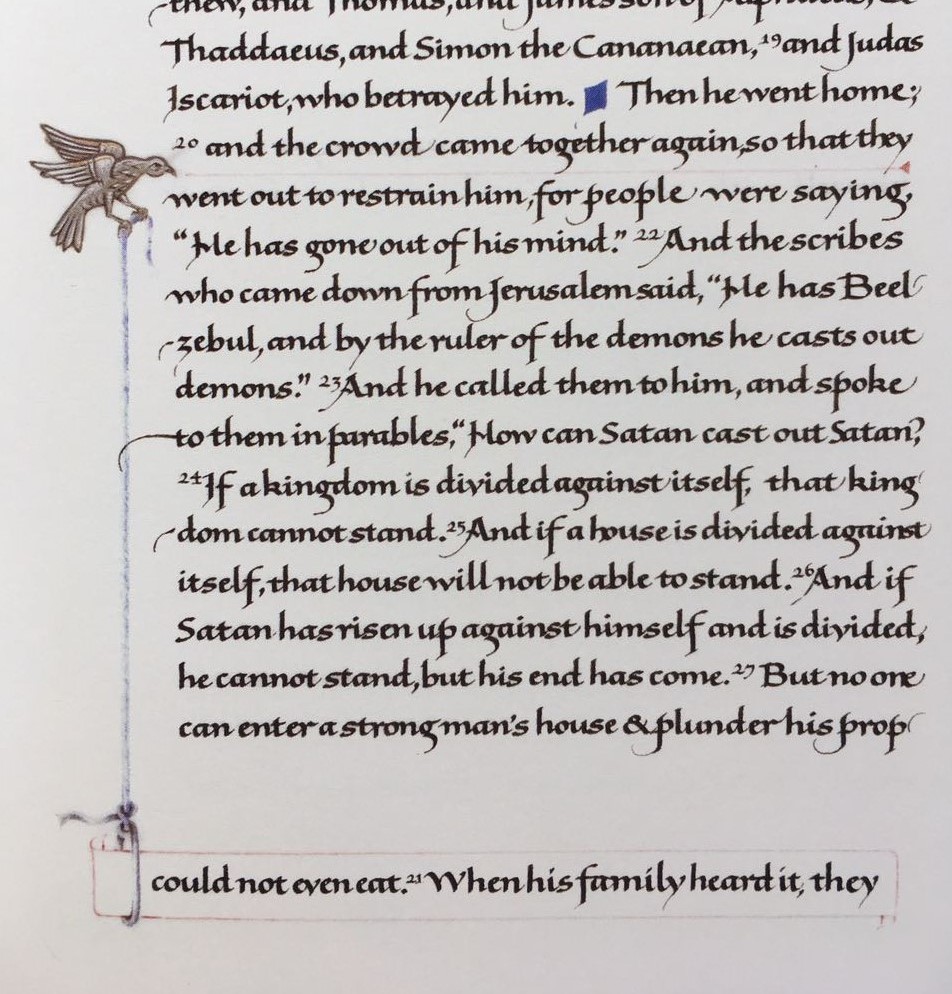 -thew, and Thomas, and James son of Alphaeus, &
Thaddaeus, and Simon the Cananaean, ¹⁹and Judas
Iscariot, who betrayed him. Then he went home;
²⁰ and the crowd came together again, so that they
went out to restrain him, for people were saying,
“He has gone out of his mind.” ²²And the scribes
who came down from Jerusalem said, “He has Beel
-zebul, and by the ruler of the demons he casts out
demons.” ²³And he called them to him, and spoke
to them in parables, “How can Satan cast out Satan?
²⁴If a kingdom is divided against itself, that king
-dom cannot stand. ²⁵And if a house is divided against
itself, that house will not be able to stand. ²⁶And if
Satan has risen up against himself and is divided,
he cannot stand, but his end has come. ²⁷ But no one
can enter a strong man's house & plunder his prop
could not even eat. ²¹ When his family heard it, they